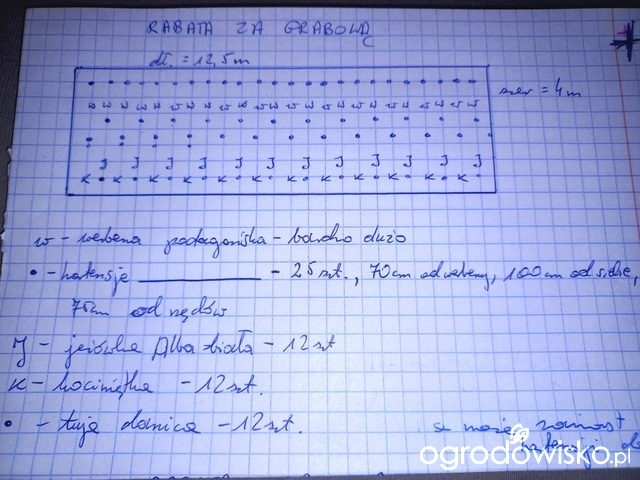 RABATA ZA GRABOWĄ
dł. = 12,5m
szer = 4m
w w w w w w w w w w w w w w w w w w w w w
J J J J J J J J J J J J
K K K K K K K K K K K K
w - werbena patagońska - bardzo dużo
• - hortensje - 25 szt., 70cm od werbeny, 100cm od siebie,
75cm od rzędów
J - jeżówka Alba biała - 12 szt
K - kocimiętka - 12 szt.
• - tuje danica - 12 szt.
a może zamiast
hortensji
ogrodowisko.pl